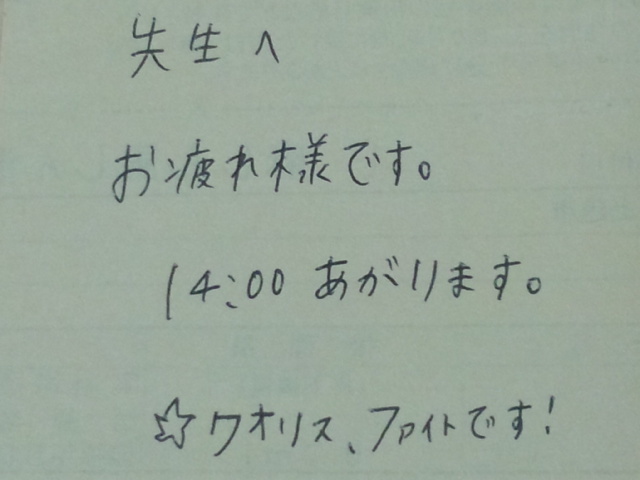 先生へ
お疲れ様です。
14:00 あがります。
☆クオリス、ファイトです!